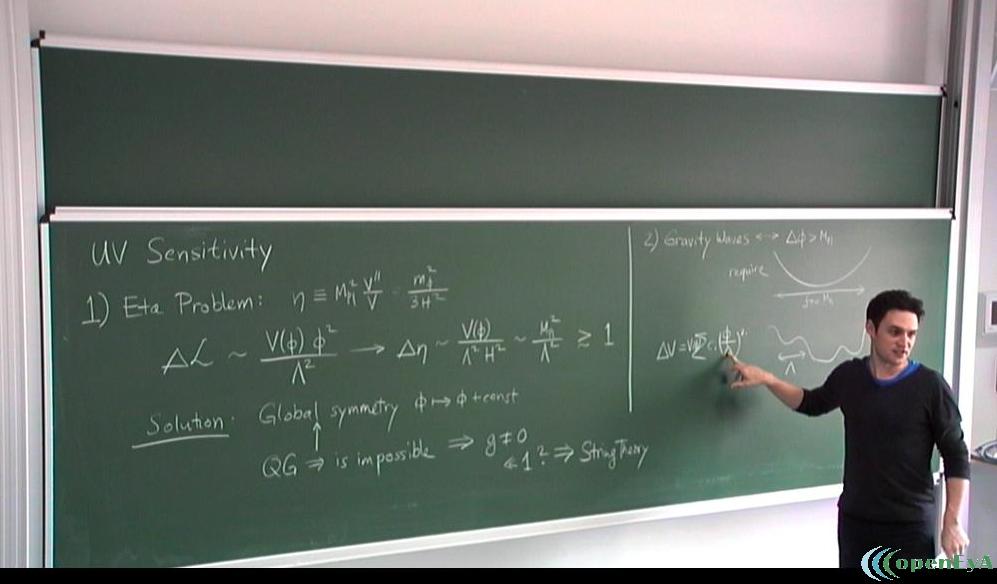 UV Sensitivity
1) Eta Problem: η ≡ M_Pl² V''/V = m_ϕ²/3H²
Δℒ ~ V(ϕ) ϕ²/Λ² → Δη ~ V(ϕ)/Λ² H² ~ M_Pl²/Λ² ≳ 1
Solution: Global symmetry ϕ ↦ ϕ + const
↑
QG ⇒ is impossible ⇒ g ≠ 0
≪ 1 ? ⇒ String Theory
2) Gravity Waves ↔ Δϕ > M_Pl
require
f > M_Pl
ΔV = V Σ c
Λ
openEyA